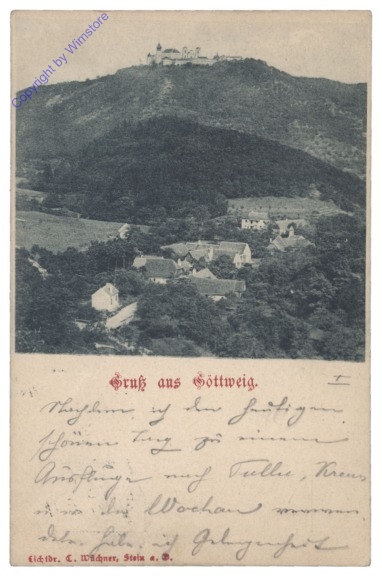 Copyright by Wimstore
Gruß aus Göttweig.
I
Nachdem ich den heutigen
schönen Tag zu einem
Ausfluge nach Tulln, Krems
in der Wochau verwen
dete, habe ich Gelegenheit
Lichtdr. C. Wächner, Stein a. D.